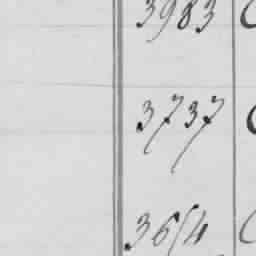 3983
3737
3614